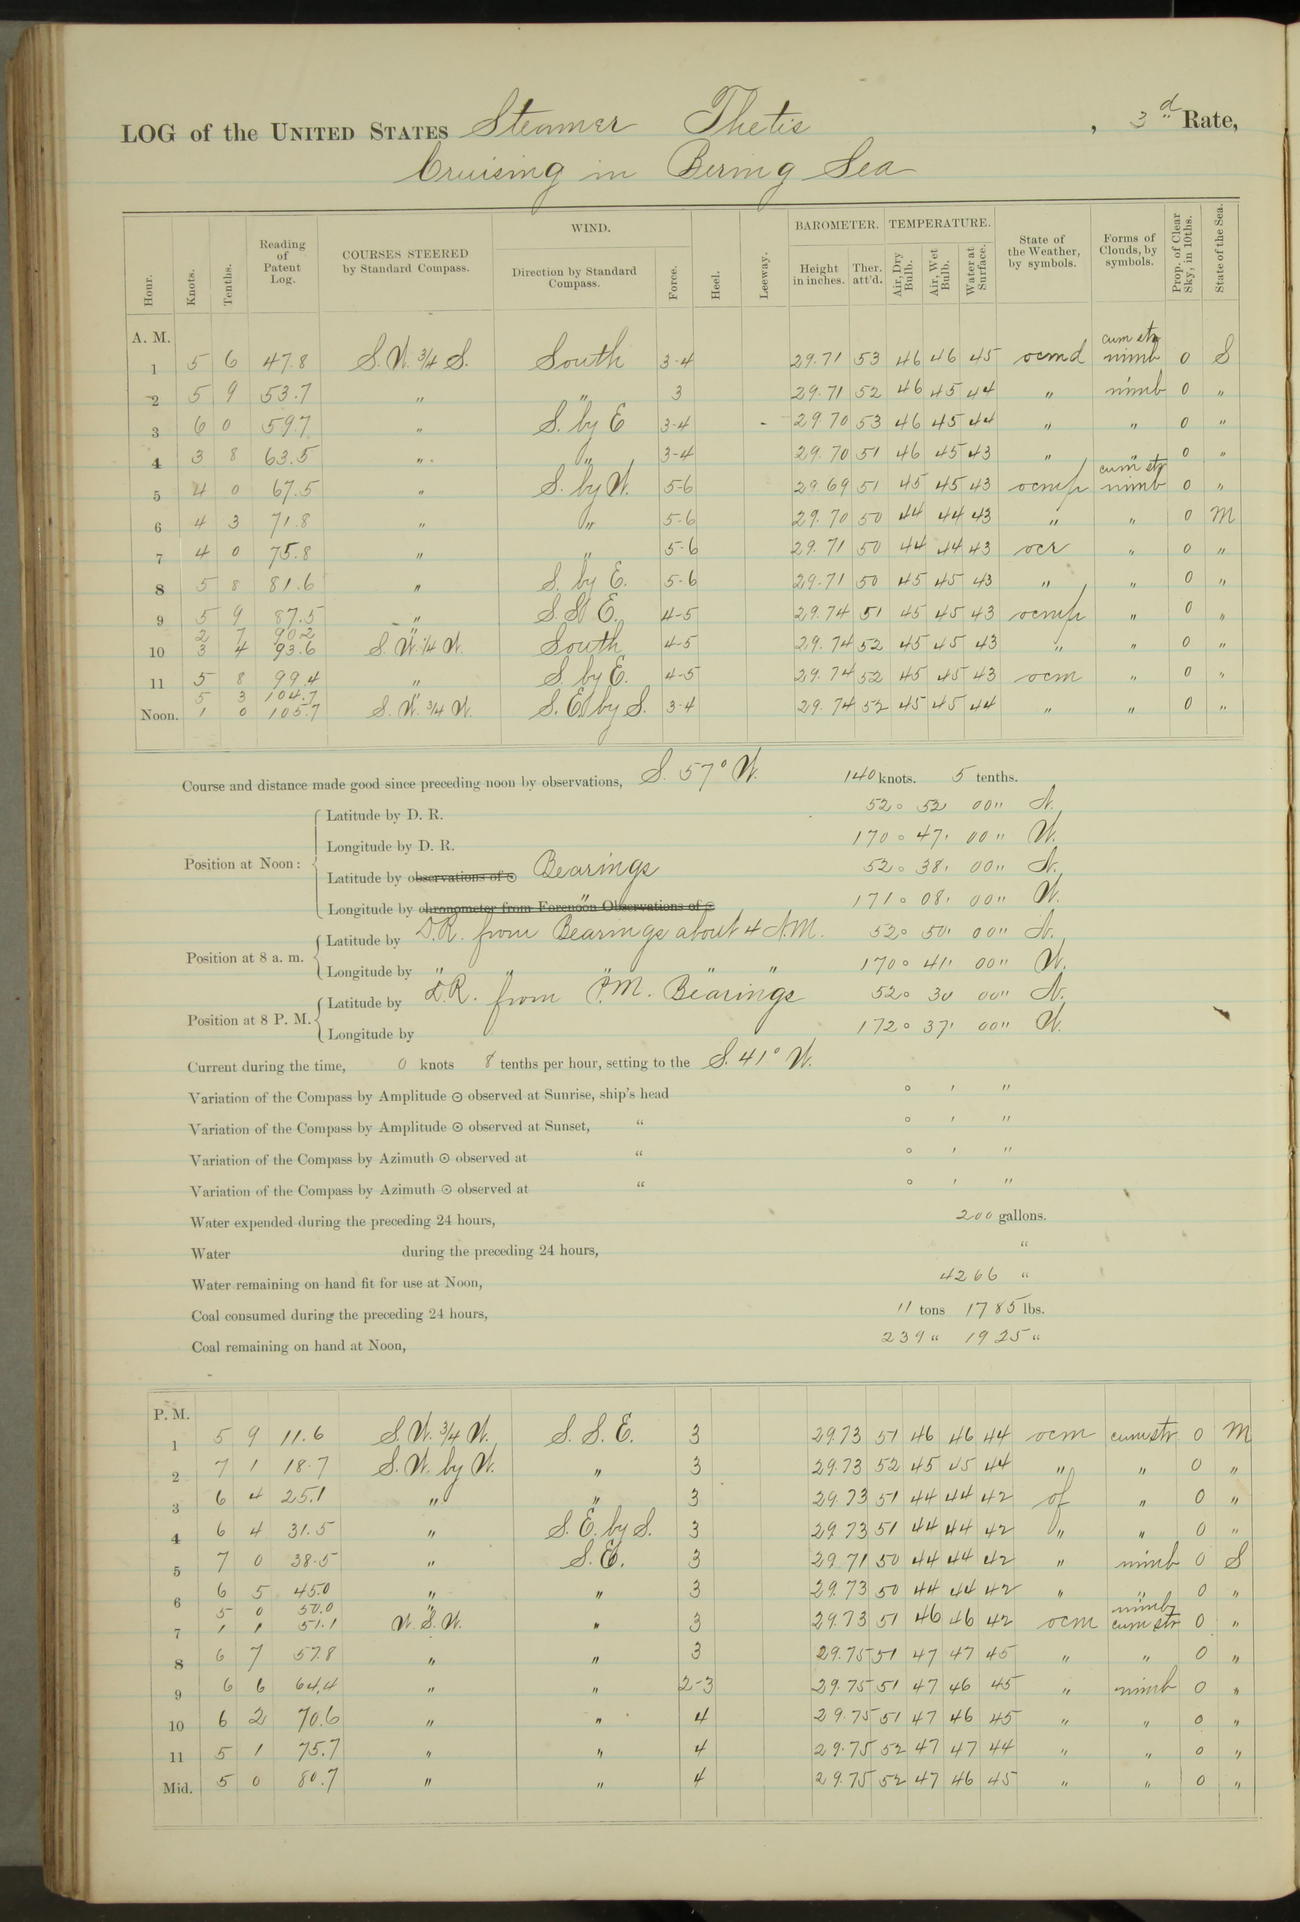 LOG of the UNITED STATES Steamer Thetis , 3d Rate,
Cruising in Bering Sea
Hour. Knots. Tenths. Reading of Patent Log. COURSES STEERED by Standard Compass. WIND. Direction by Standard Compass. Force. Heel. Leeway. BAROMETER. Height in inches. Ther. att'd. TEMPERATURE. Air, Dry Bulb. Air, Wet Bulb. Water at Surface. State of the Weather, by symbols. Forms of Clouds, by symbols. Prop. of Clear Sky, in 10ths. State of the Sea.
A. M.
1 5 6 47.8 S. W. 3/4 S. South 3-4 29.71 53 46 46 45 ocmd cum str nimb 0 S
2 5 9 53.7 " " 3 29.71 52 46 45 44 " nimb 0 "
3 6 0 59.7 " S. by E 3-4 - 29.70 53 46 45 44 " " 0 "
4 3 8 63.5 " " 3-4 29.70 51 46 45 43 " " 0 "
5 4 0 67.5 " S. by W. 5-6 29.69 51 45 45 43 ocmp cum str nimb 0 "
6 4 3 71.8 " " 5-6 29.70 50 44 44 43 " " 0 M
7 4 0 75.8 " " 5-6 29.71 50 44 44 43 ocr " 0 "
8 5 8 81.6 " S. by E. 5-6 29.71 50 45 45 43 " " 0 "
9 5 9 87.5 " S. S. E. 4-5 29.74 51 45 45 43 ocmp " 0 "
2 7 90.2 "
10 3 4 93.6 S. W. 1/4 W. South 4-5 29.74 52 45 45 43 " " 0 "
11 5 8 99.4 " S. by E. 4-5 29.74 52 45 45 43 ocm " 0 "
5 3 104.7 "
Noon. 1 0 105.7 S. W. 3/4 W. S. E. by S. 3-4 29.74 52 45 45 44 " " 0 "
Course and distance made good since preceding noon by observations, S. 57° W. 140 knots. 5 tenths.
Position at Noon: Latitude by D. R. 52° 52 00" N.
Longitude by D. R. 170° 47' 00" W.
Latitude by observations of ⊙ Bearings 52° 38' 00" N.
Longitude by chronometer from Forenoon Observations of ⊙ " 171° 08' 00" W.
Position at 8 a. m. Latitude by D.R. from Bearings about 4 A.M. 52° 50' 00" N.
Longitude by " " " " " 170° 41' 00" W.
Position at 8 P. M. Latitude by D.R. from P.M. Bearings 52° 30 00" N.
Longitude by 172° 37' 00" W.
Current during the time, 0 knots 8 tenths per hour, setting to the S. 41° W.
Variation of the Compass by Amplitude ⊙ observed at Sunrise, ship's head ° ' "
Variation of the Compass by Amplitude ⊙ observed at Sunset, " ° ' "
Variation of the Compass by Azimuth ⊙ observed at " ° ' "
Variation of the Compass by Azimuth ⊙ observed at " ° ' "
Water expended during the preceding 24 hours, 200 gallons.
Water during the preceding 24 hours, "
Water remaining on hand fit for use at Noon, 4266 "
Coal consumed during the preceding 24 hours, 11 tons 1785 lbs.
Coal remaining on hand at Noon, 239 " 1925 "
P. M.
1 5 9 11.6 S. W. 3/4 W. S. S. E. 3 29.73 51 46 46 44 ocm cum str 0 M
2 7 1 18.7 S. W. by W. " 3 29.73 52 45 45 44 " " 0 "
3 6 4 25.1 " " 3 29.73 51 44 44 42 of " 0 "
4 6 4 31.5 " S. E. by S. 3 29.73 51 44 44 42 " " 0 "
5 7 0 38.5 " S. E. 3 29.71 50 44 44 42 " nimb 0 S
6 6 5 45.0 " " 3 29.73 50 44 44 42 " " 0 "
5 0 50.0 " nimb
7 1 1 51.1 W. S. W. " 3 29.73 51 46 46 42 ocm cum str 0 "
8 6 7 57.8 " " 3 29.75 51 47 47 45 " " 0 "
9 6 6 64.4 " " 2-3 29.75 51 47 46 45 " nimb 0 "
10 6 2 70.6 " " 4 29.75 51 47 46 45 " " 0 "
11 5 1 75.7 " " 4 29.75 52 47 47 44 " " 0 "
Mid. 5 0 80.7 " " 4 29.75 52 47 46 45 " " 0 "